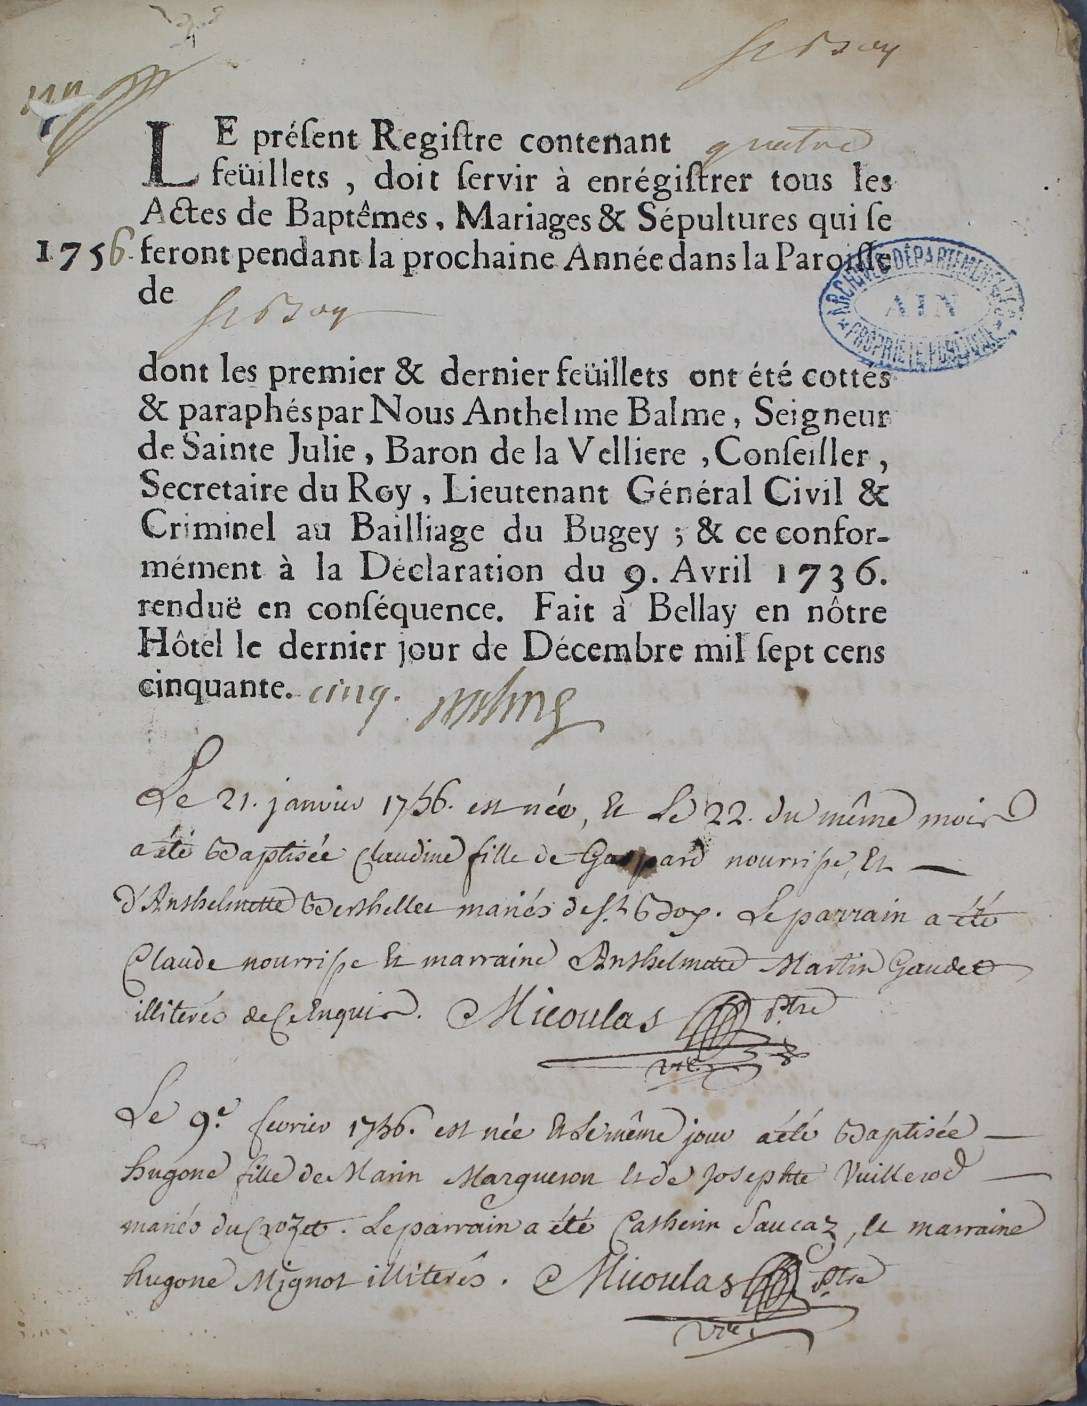 St Boy
LE préſent Regiſtre contenant quatre
feüillets, doit ſervir à enrégiſtrer tous les
Actes de Baptêmes, Mariages & Sépultures qui ſe
1756. feront pendant la prochaine Année dans la Paroiſſe
de
St Boy
ARCHIVES DÉPARTEMENTALES
AIN
PROPRIÉTÉ PUBLIQUE
dont les premier & dernier feüillets ont été cottés
& paraphés par Nous Anthelme Balme, Seigneur
de Sainte Julie, Baron de la Velliere, Conſeiller,
Secretaire du Roy, Lieutenant Général Civil &
Criminel au Bailliage du Bugey; & ce confor-
mément à la Déclaration du 9. Avril 1736.
renduë en conſéquence. Fait à Bellay en nôtre
Hôtel le dernier jour de Décembre mil ſept cens
cinquante. cinq.
Le 21. janvier 1756. est née, Et Le 22. du même mois
a été Baptisée Claudine fille de Gaspard nourrisse, Et
d'Anthelmette Berthellet mariés de St Boy. Le parrain a été
Claude nourrisse Et marraine Anthelmette Martin Gaudet
illiterés de Ce Enquis. Micoulas ptre
vic.
Le 9e. fevrier 1756. est née Et Le même jour a été Baptisée
hugone fille de Marin Margueron Et de Josephte Vuillerod
mariés du Crozet. Le parrain a été Catherin Saucaz, Et marraine
hugone Mignot illiterés. Micoulas ptre
vic.